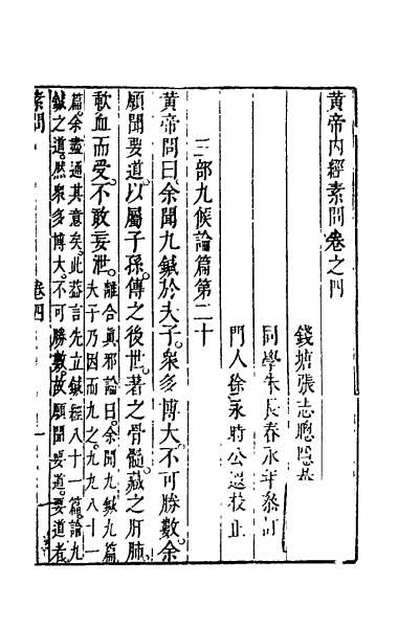 黃帝內經素問卷之四
錢塘張志聰隱菴
同學朱長春永年叅訂
門人徐永時公遐校正
三部九候論篇第二十
黃帝問曰余聞九鍼於夫子。衆多博大。不可勝數。余
願聞要道。以屬子孫。傳之後世。著之骨髓。藏之肝肺。
歃血而受。不敢妄泄。離合眞邪論曰。余聞九鍼九篇
夫子乃因而九之。九九八十一
篇。余盡通其意矣。此葢言先立鍼經八十一篇。論九
鍼之道。然衆多博大。不可勝數。故願聞要道。要道者
素問
卷四